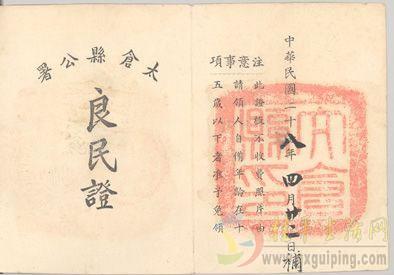 太倉縣公署
良民證
中華民國二十八年四月廿二日補
注意事項
此證概不收費照片由
請領人自備年齡在十
五歲以下者准予免領
太倉
縣印
gxguiping.com